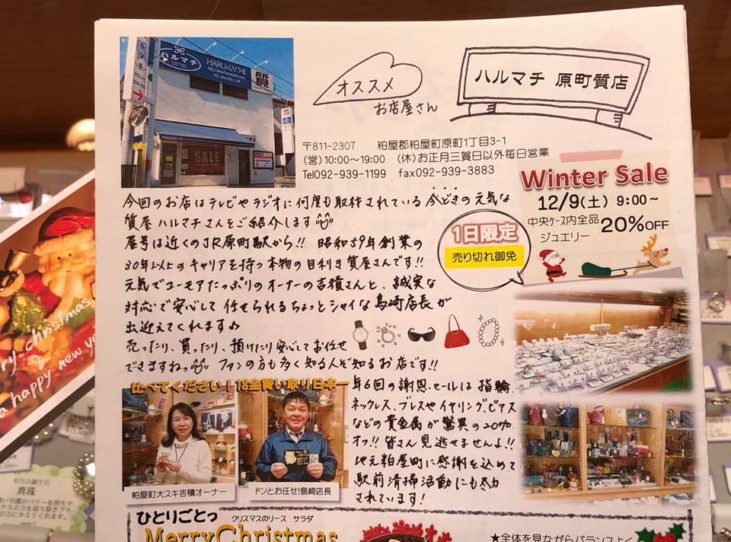 ハルマチ
HARUMACHI
質
SALE
オススメ
お店屋さん
ハルマチ 原町質店
〒811-2307 粕屋郡粕屋町原町1丁目3-1
(営)10:00~19:00 (休)お正月三賀日以外毎日営業
Tel092-939-1199 fax092-939-3883
今回のお店はテレビやラジオに何度も取材されている今どきの元気な
質屋ハルマチさんをご紹介します
屋号は近くのJR原町駅から!! 昭和59年創業の
30年以上のキャリアを持つ本物の目利き質屋さんです!!
元気でユーモアたっぷりのオーナーの吉積さんと、誠実な
対応で安心して任せられるちょっとシャイな島崎店長が
出迎えてくれます♪
売ったり、買ったり、預けたり安心してお任せ
できますねっ ファンの方も多く知る人ぞ知るお店です!!
Winter Sale
12/9(土) 9:00~
中央ケース内全品
ジュエリー 20%OFF
1日限定
売り切れ御免
比べてください!18金買い取り日本一
粕屋町大スキ吉積オーナー
ドンとお任せ!島崎店長
年6回の謝恩セールは指輪
ネックレス、ブレスやイヤリング、ピアス
などの貴金属が驚異の20%
オフ!! 皆さん見逃せませんよ!!
地元粕屋町に感謝を込めて
駅前清掃活動にも尽力
されています!
ひとりごとっ
クリスマスのリース サラダ
MerryChristmas
★全体を見ながらバランスよく
rry Christmas
a happy new yea
真珠